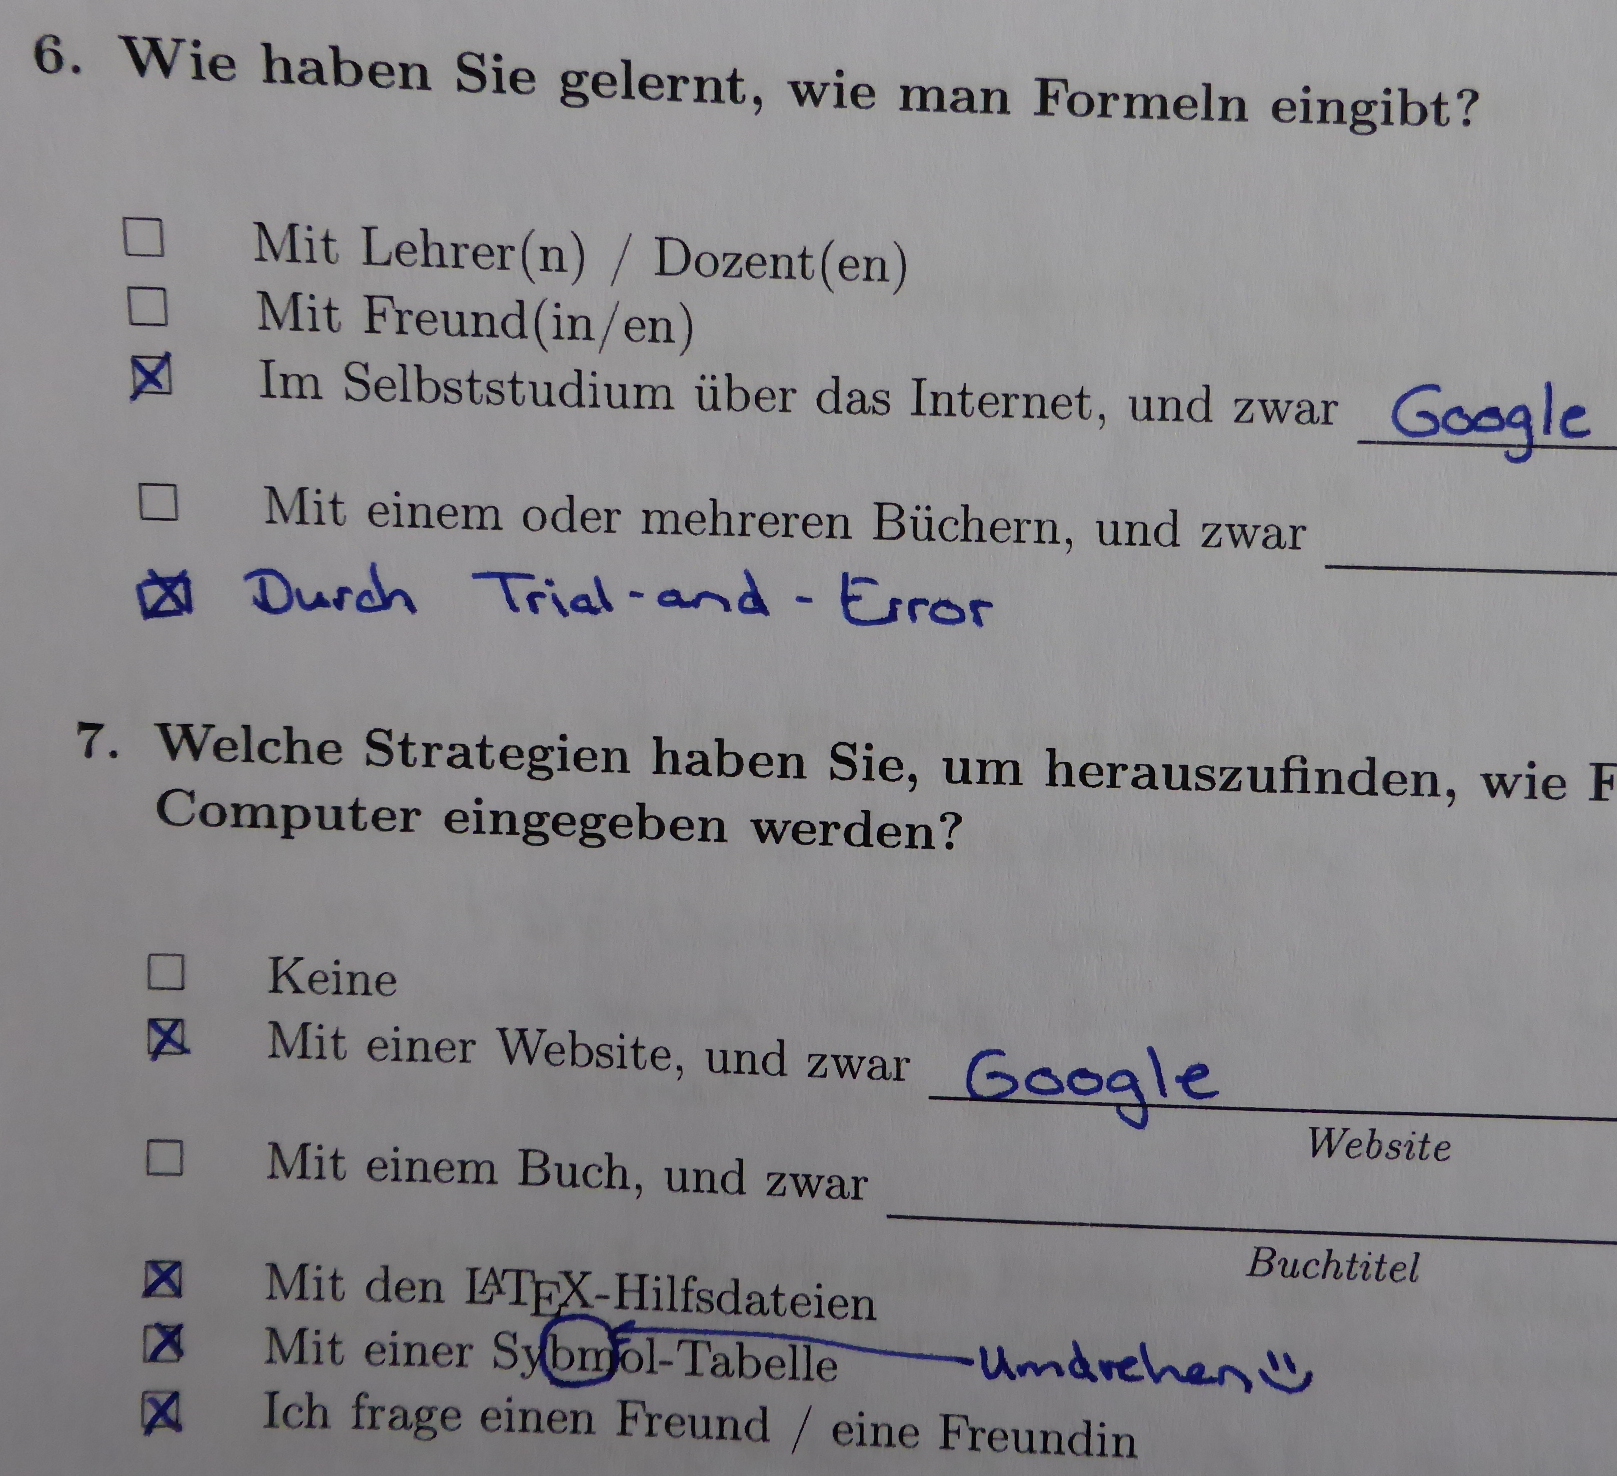 6. Wie haben Sie gelernt, wie man Formeln eingibt?
☐ Mit Lehrer(n) / Dozent(en)
☐ Mit Freund(in/en)
☒ Im Selbststudium über das Internet, und zwar Google
☐ Mit einem oder mehreren Büchern, und zwar
☒ Durch Trial-and-Error
7. Welche Strategien haben Sie, um herauszufinden, wie F
Computer eingegeben werden?
☐ Keine
☒ Mit einer Website, und zwar Google
Website
☐ Mit einem Buch, und zwar
Buchtitel
☒ Mit den LATEX-Hilfsdateien
☒ Mit einer Sybmol-Tabelle Umdrehen
☒ Ich frage einen Freund / eine Freundin